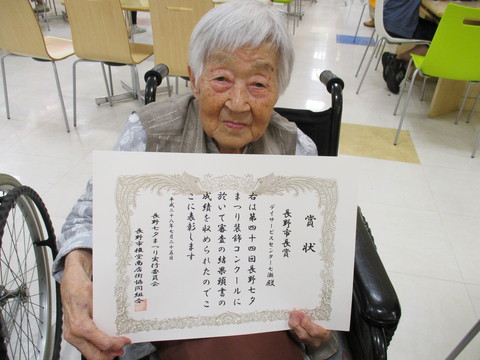 賞状
長野市長賞
デイサービスセンター七瀬殿
右は第四十四回長野七夕
まつり装飾コンクールに
於いて審査の結果頭書の
成績を収められたのでこ
こに表彰します
平成二十八年七月二十五日
長野七夕まつり実行委員会
長野市権堂商店街協同組合